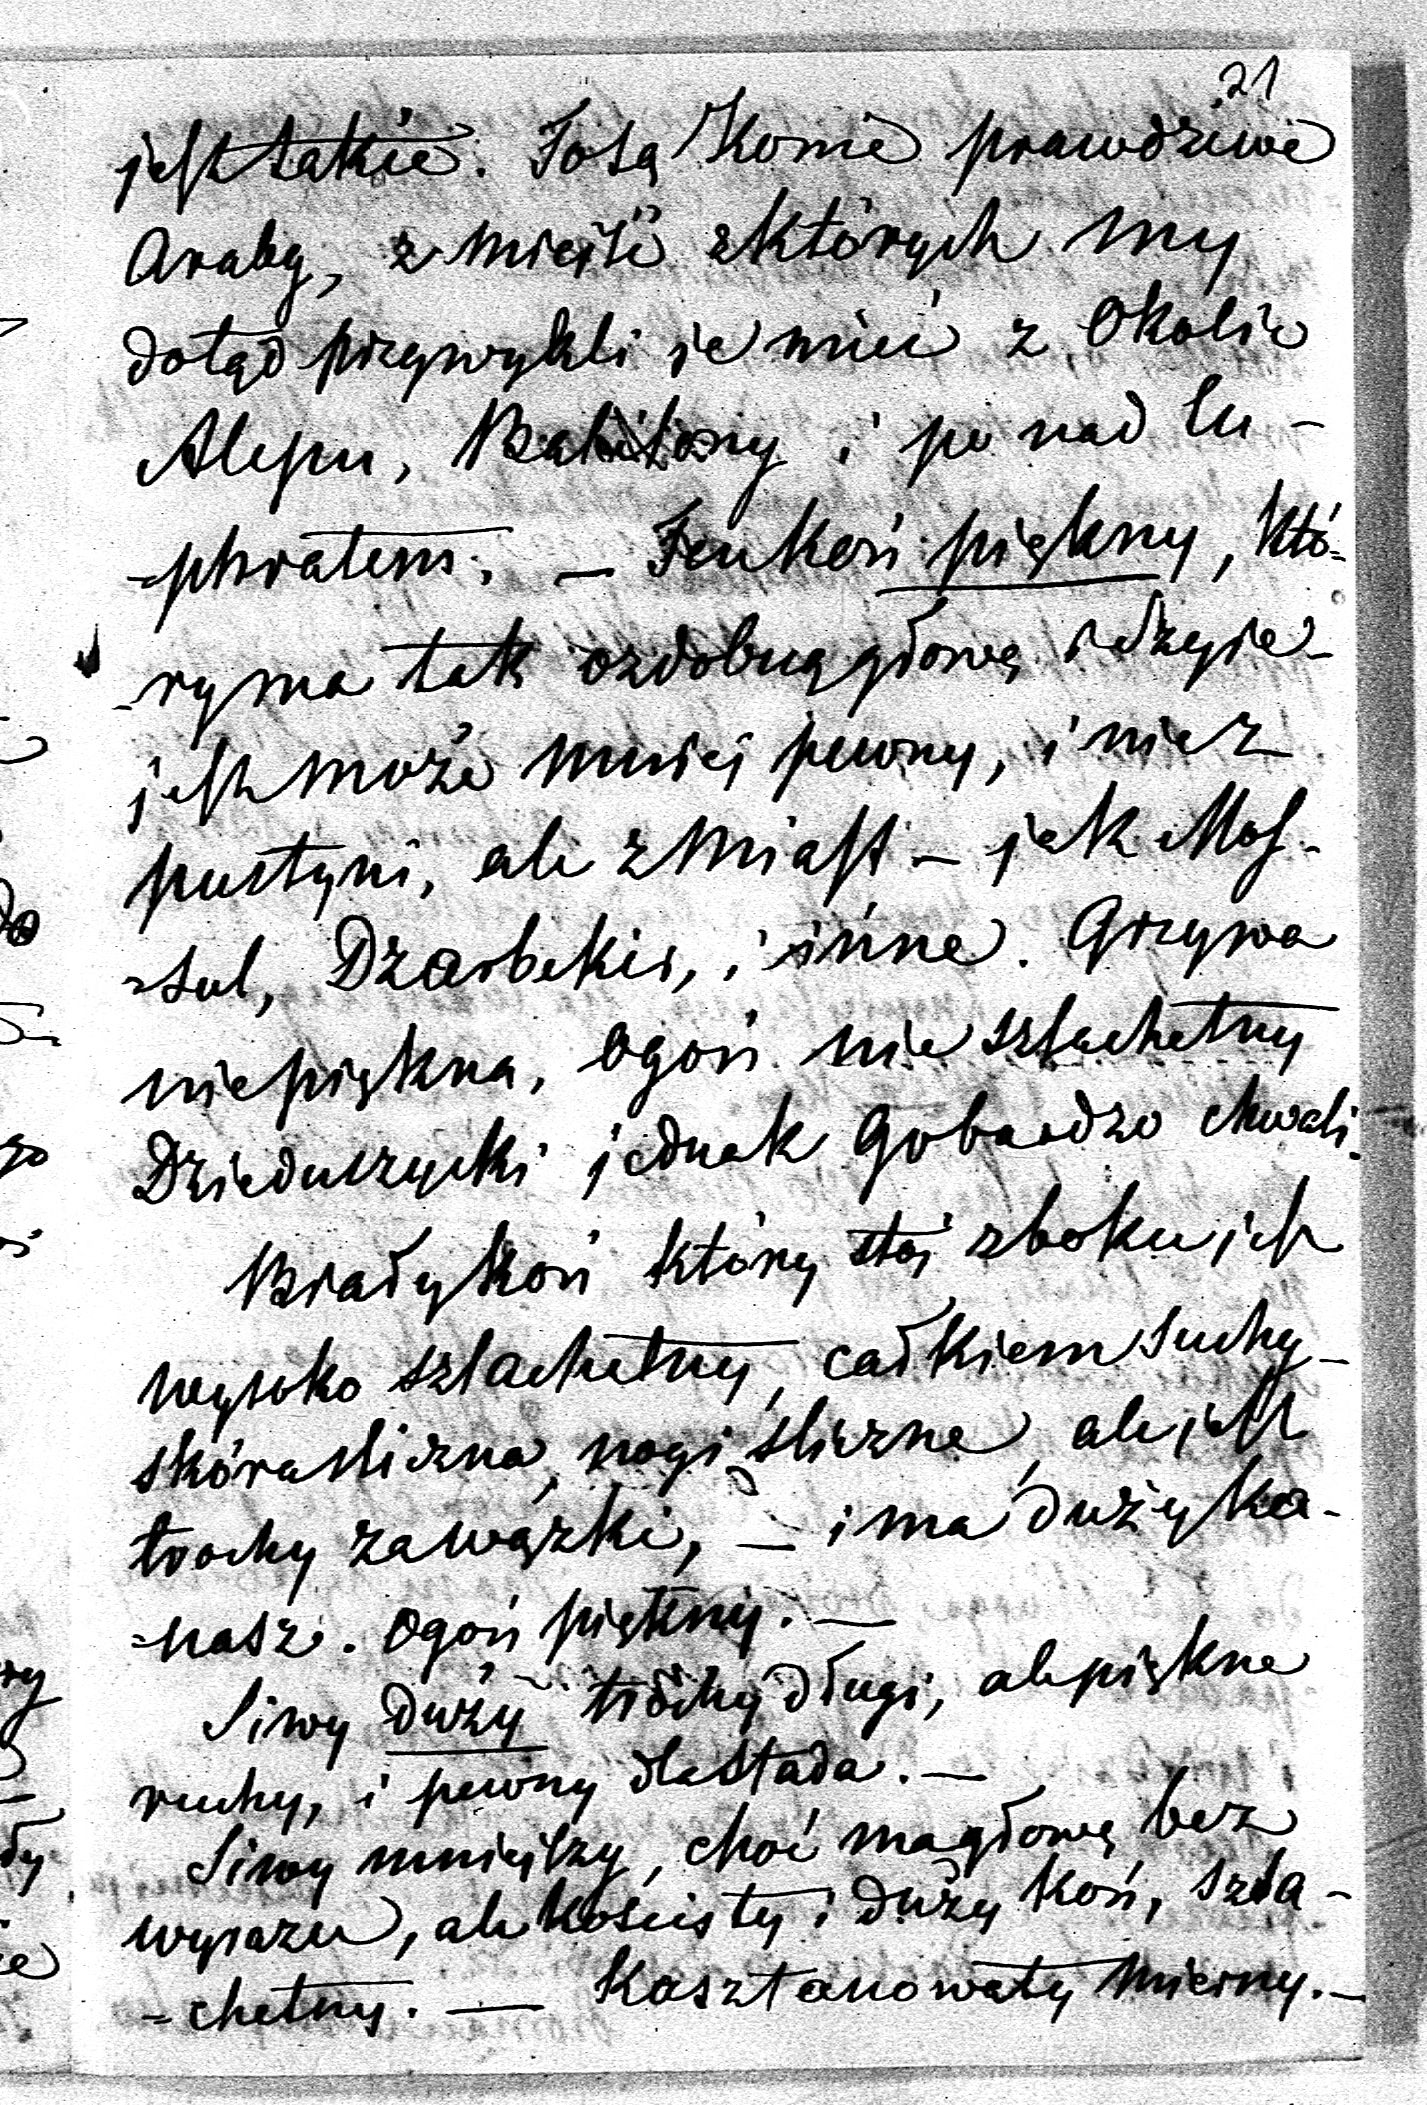 21
jest takie. To są Konie prawdziwe
Araby, z mieiść z których my
dotąd przywykli je mieć z Okolic
Alepu, Babilony i po nad Eu-
-phratem. — Ten Koń piękny, któ-
-ry ma tak ozdobną głowę i szyie-
jest może mniej pewny, i nie z
pustyni, ale z Miast — jak Mos-
-sul, Dzarbekir, i inne. Grzywa
niepiękna, Ogoń nie szlachetny
Dzieduszycki jednak Go bardzo chwali.
Biały koń który stoj z boku jest
wysoko szlachetny, całkiem suchy-
skóra śliczna, nogi śliczne, ale jest
trochy za wązki, — i ma duży ka-
-nasz. Ogoń piękny. —
Siwy duży trochy długi, ale piękne
ruchy, i pewny dla Stada. —
Siwy mnieiszy, choć ma głowę bez
wyrazu, ale kościsty i duży koń, szla-
-chetny. — Kasztanowaty mierny. —